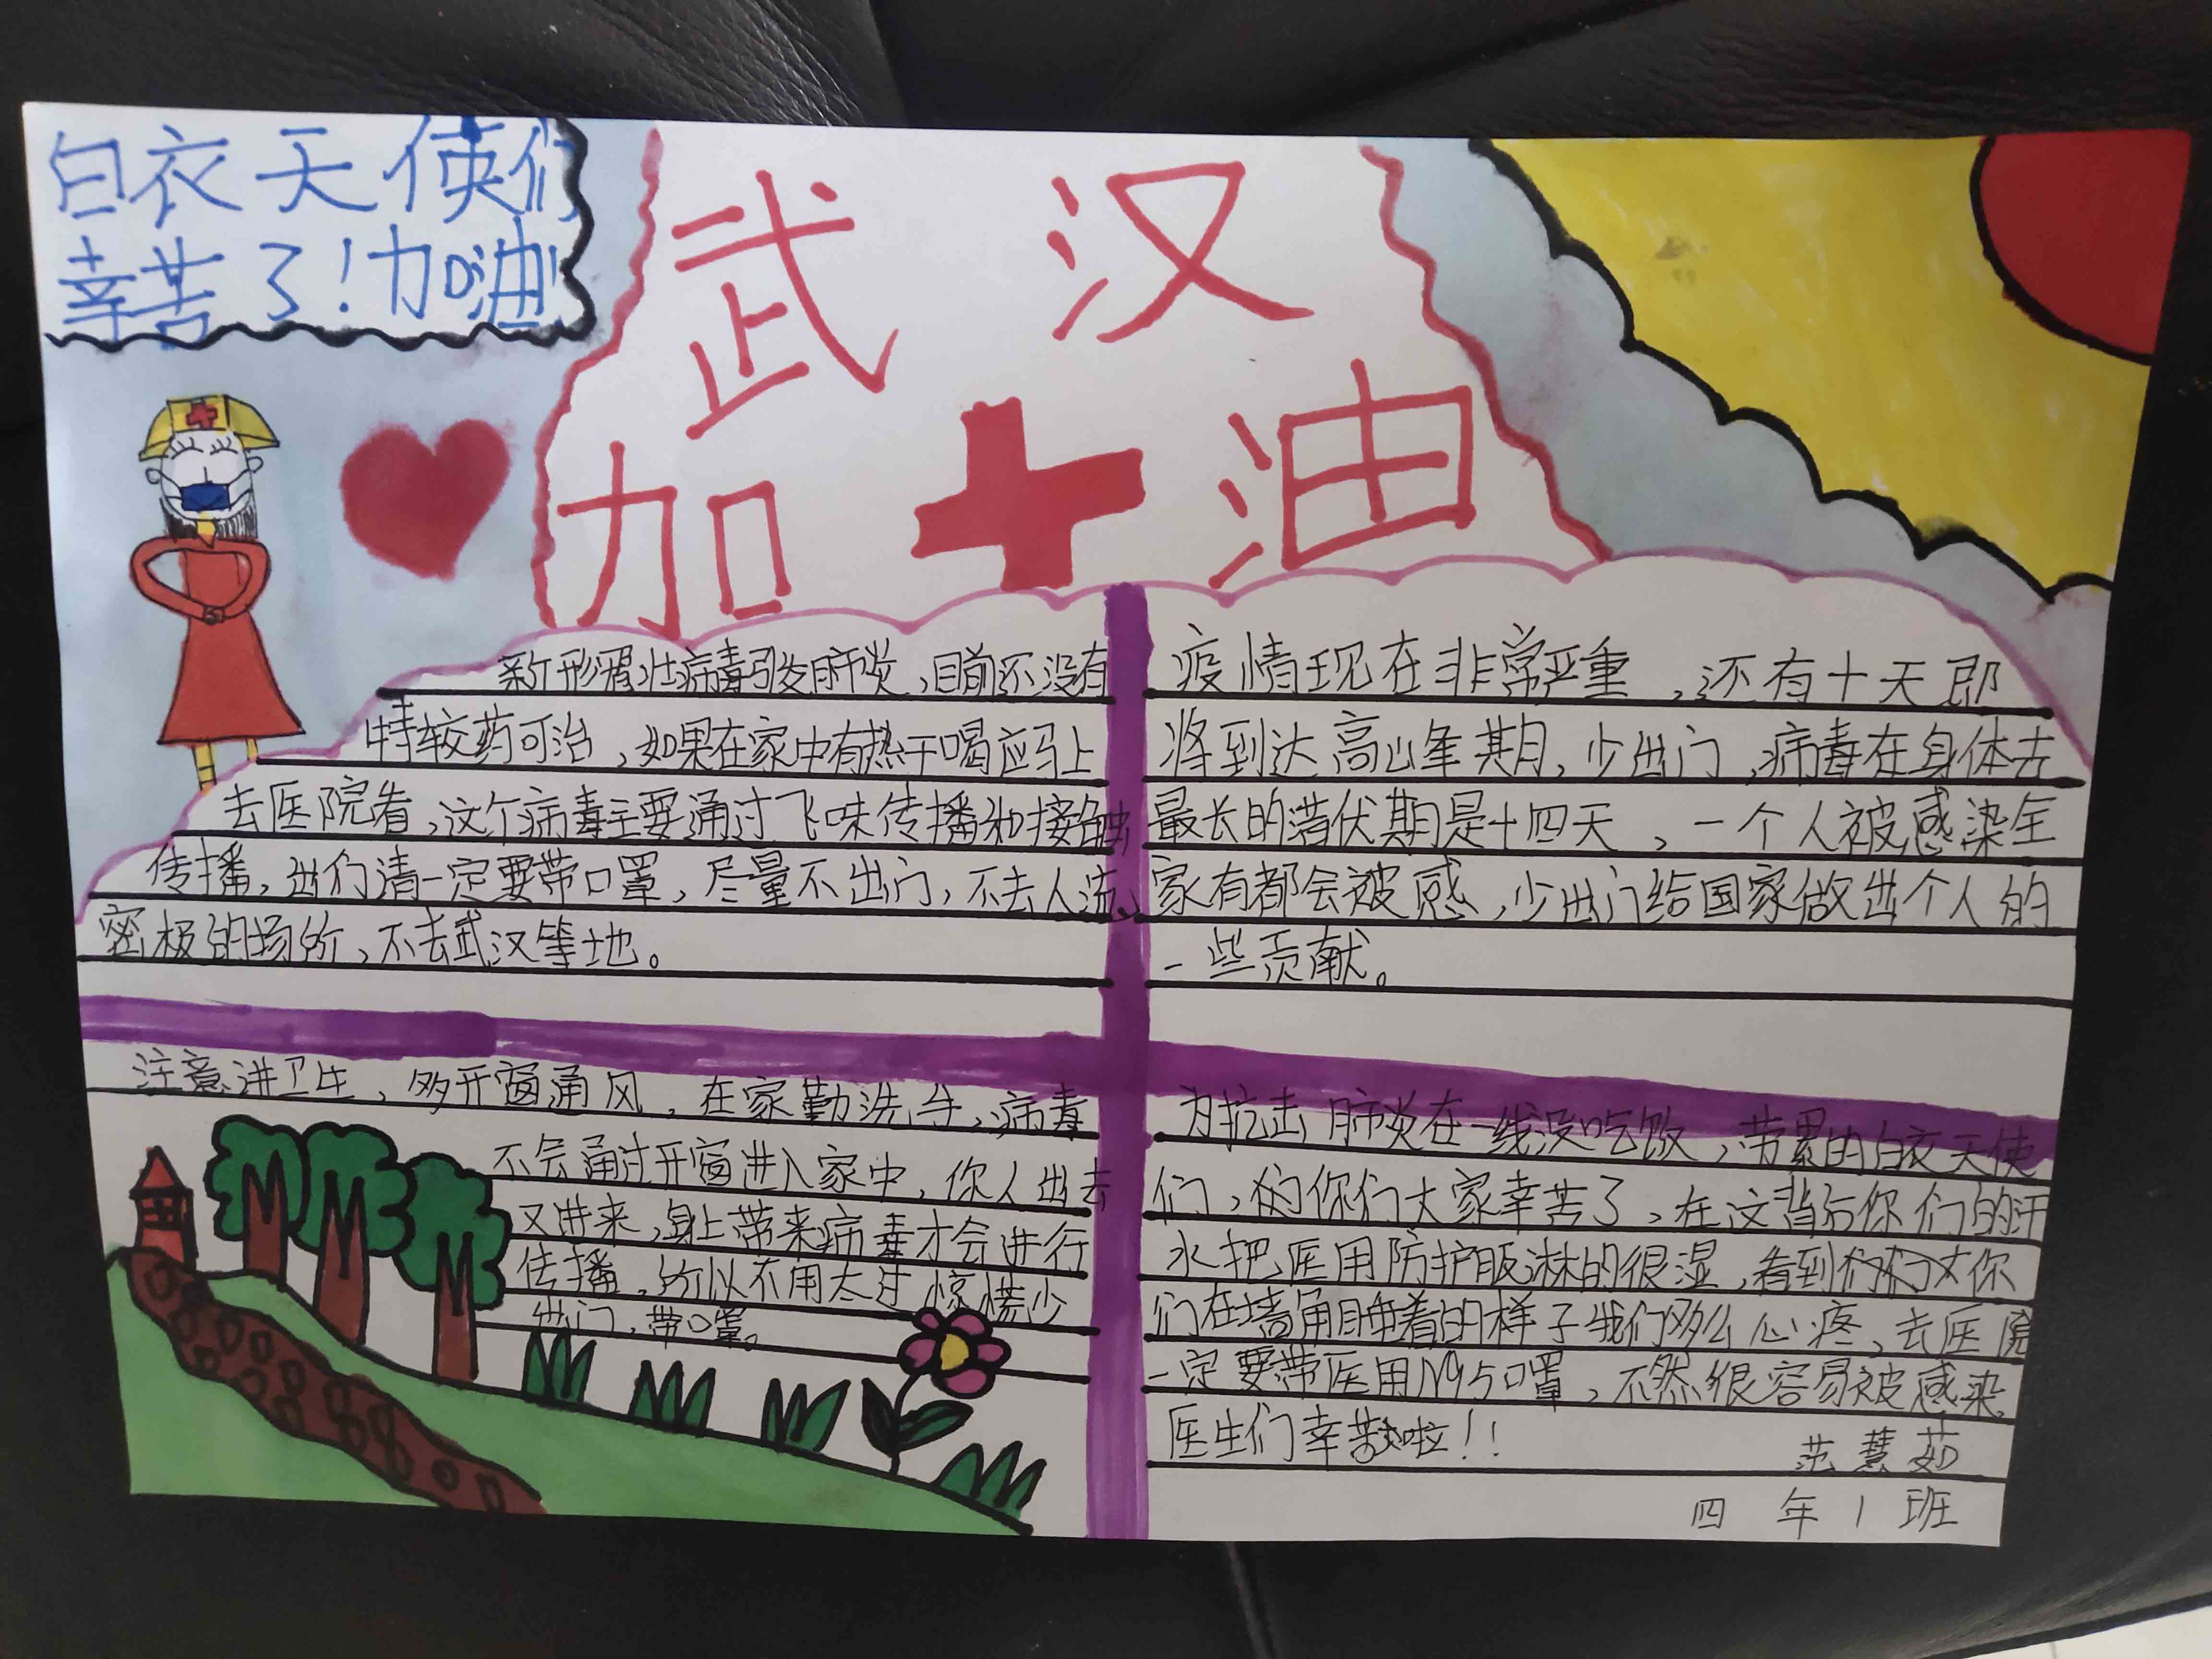 白衣天使们
幸苦了！加油！
武汉
加油
新形冠壮病毒引发肺炎，目前还没有
特较药可治，如果在家中有热干喝应马上
去医院看，这个病毒主要通过飞味传播和接触
传播，出们请一定要带口罩，尽量不出门，不去人流
密极的场所，不去武汉等地。
疫情现在非常严重，还有十天即
将到达高山峯期，少出门，病毒在身体去
最长的潜伏期是十四天，一个人被感染全
家有都会被感，少出门给国家做出个人的
一些贡献。
注意进卫生，多开窗通风，在家勤洗手，病毒
不会通过开窗进入家中，你人出去
又进来，身上带来病毒才会进行
传播，所以不用太过惊慌少
出门，带口罩。
为抗击肺炎在一线没吃饭，劳累的白衣天使
们，你们大家幸苦了，在这背后你们的汗
水把医用防护服淋的很湿，看到你
们在墙角睡着的样子我们多么心疼，去医院
一定要带医用N95口罩，不然很容易被感染，
医生们幸苦啦！！
范慧茹
四年1班